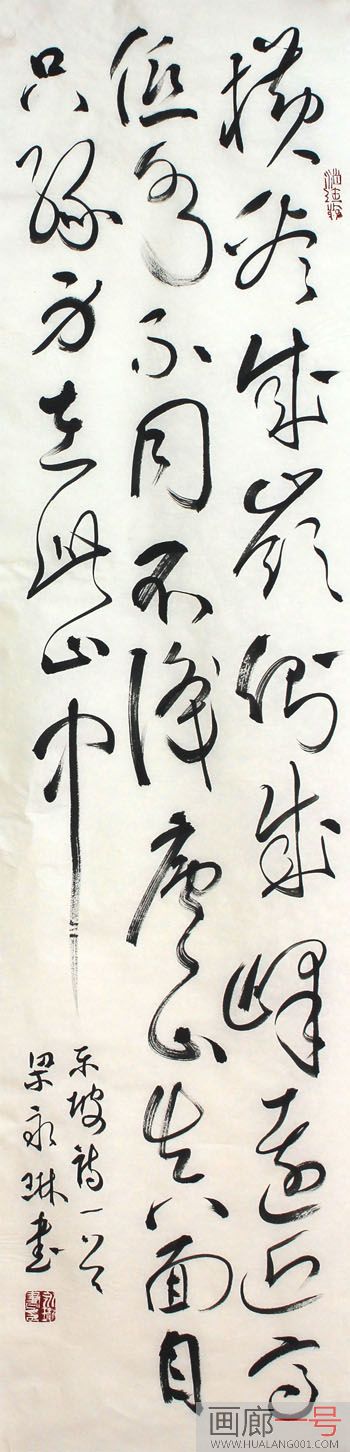 横看成嶺側成峰遠近高
低各不同不識廬山真面目
只緣身在此山中
东坡詩一首
梁永琳書
画廊一号
WWW.HUALANG001.COM